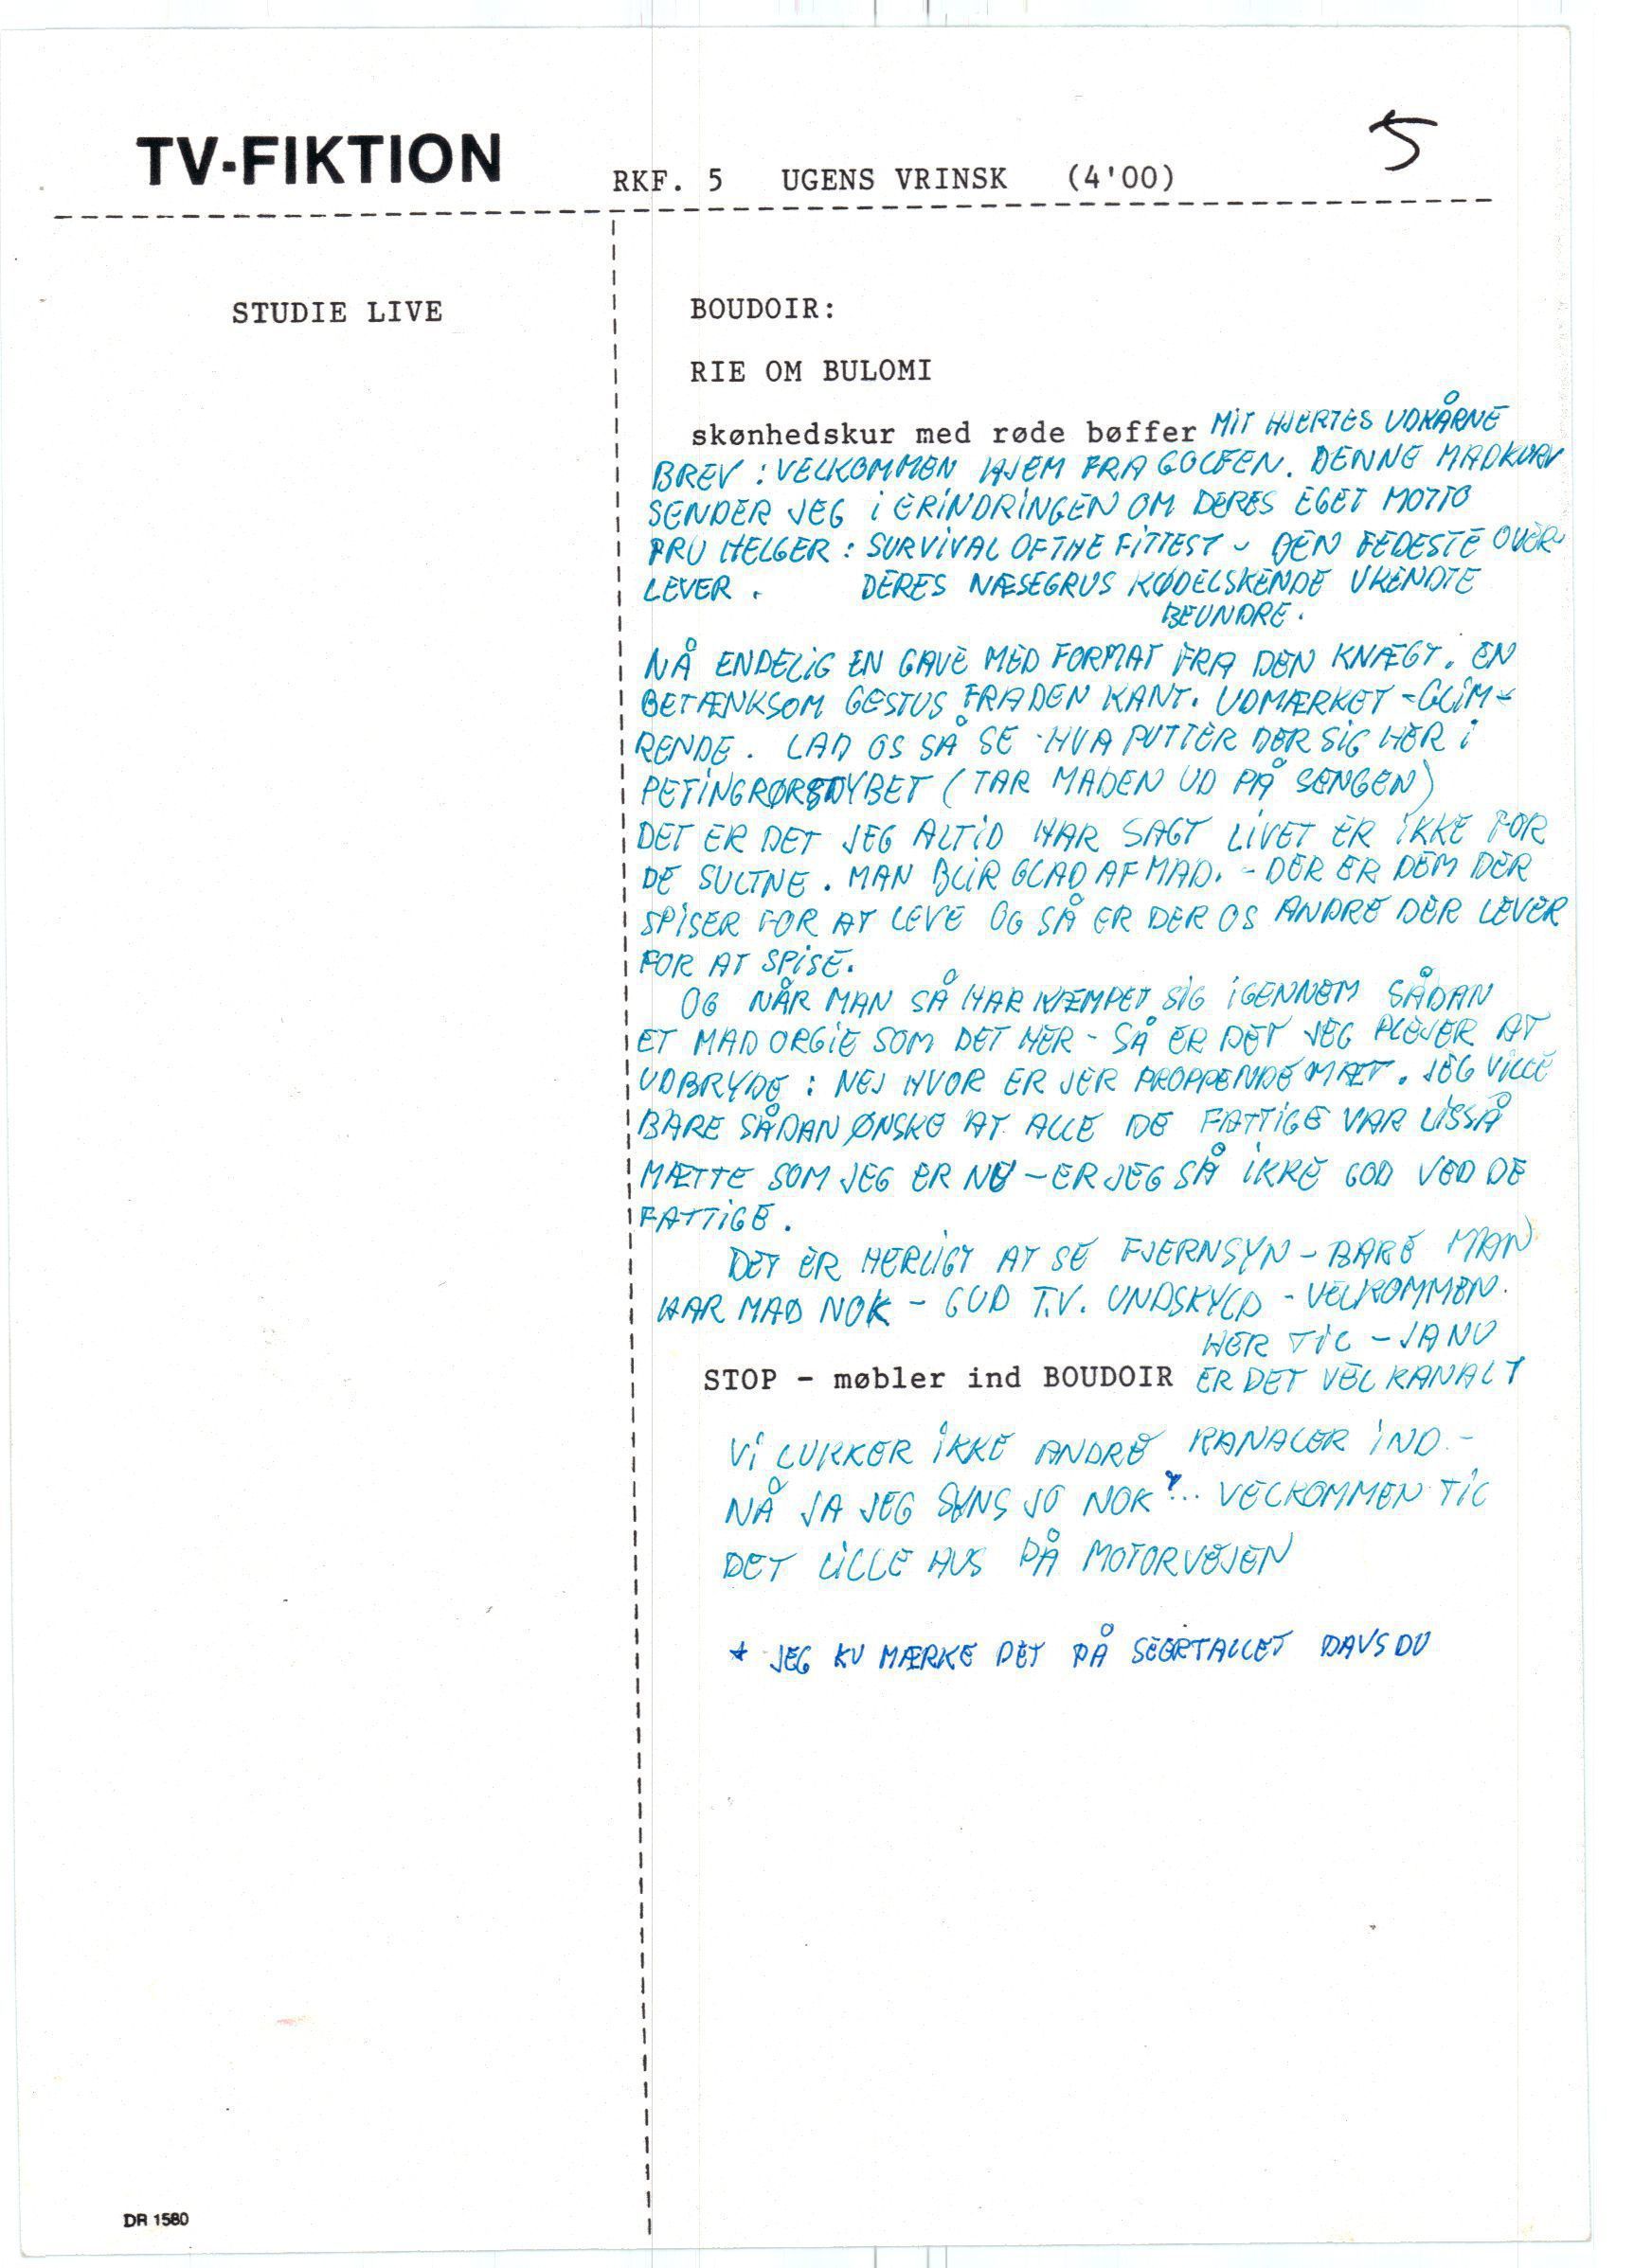 5
TV-FIKTION
RKF. 5 UGENS VRINSK (4'00)
STUDIE LIVE
BOUDOIR:
RIE OM BULOMI
skønhedskur med røde bøffer MIT HJERTES UDKÅRNE
BREV : VELKOMMEN HJEM FRA GOLFEN. DENNE MADKURV
SENDER JEG I ERINDRINGEN OM DERES EGET MOTTO
FRU HELGER : SURVIVAL OF THE FITTEST - DEN FEDESTE OVER-
LEVER . DERES NÆSEGRUS KØDELSKENDE UKENDTE
BEUNDRE.
NÅ ENDELIG EN GAVE MED FORMAT FRA DEN KNÆGT. EN
BETÆNKSOM GESTUS FRA DEN KANT. UDMÆRKET - GLIM-
RENDE. LAD OS SÅ SE - HVA PUTTER DER SIG HER I
PETINGRØRSDYBET (TAR MADEN UD PÅ SENGEN)
DET ER DET JEG ALTID HAR SAGT LIVET ER IKKE FOR
DE SULTNE. MAN BLIR GLAD AF MAD. - DER ER DEM DER
SPISER FOR AT LEVE OG SÅ ER DER OS ANDRE DER LEVER
FOR AT SPISE.
OG NÅR MAN SÅ HAR KÆMPET SIG IGENNEM SÅDAN
ET MAD ORGIE SOM DET HER - SÅ ER DET JEG PLEJER AT
UDBRYDE : NEJ HVOR ER JER PROPPENDE MÆT. JEG VILLE
BARE SÅDAN ØNSKE AT ALLE DE FATTIGE VAR LISSÅ
MÆTTE SOM JEG ER NU - ER JEG SÅ IKKE GOD VED DE
FATTIGE.
DET ER HERLIGT AT SE FJERNSYN - BARE MAN
HAR MAD NOK - GUD T.V. UNDSKYLD - VELKOMMEN.
HER TIL - JA NU
STOP - møbler ind BOUDOIR ER DET VEL KANALT
VI LUKKER IKKE ANDRE KANALER IND -
NÅ JA JEG SYNS JO NOK *... VELKOMMEN TIL
DET LILLE HUS PÅ MOTORVEJEN
* JEG KU MÆRKE DET PÅ SEERTALLET DAVS DU
DR 1580